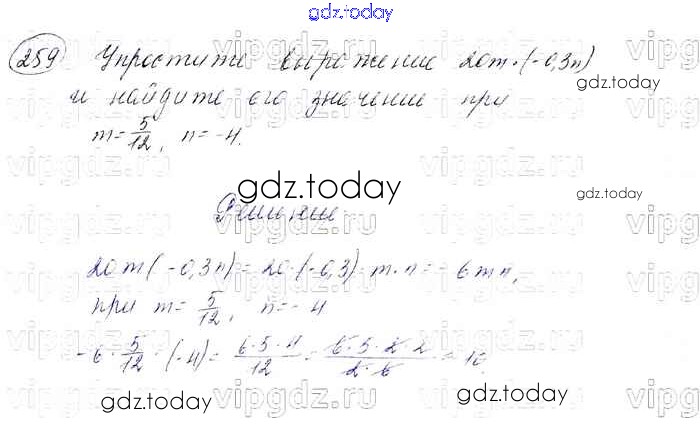 gdz.today
259 Упростите выражение 20m·(-0,3n)
и найдите его значение при
m=5/12, n=-4.
gdz.today
gdz.today
Решение
20m(-0,3n)=20·(-0,3)·m·n=-6mn,
при m=5/12, n=-4
-6·5/12·(-4)=6·5·4/12=6·5·2·2/2·6=10.
gdz.today
gdz.today
vipgdz.ru